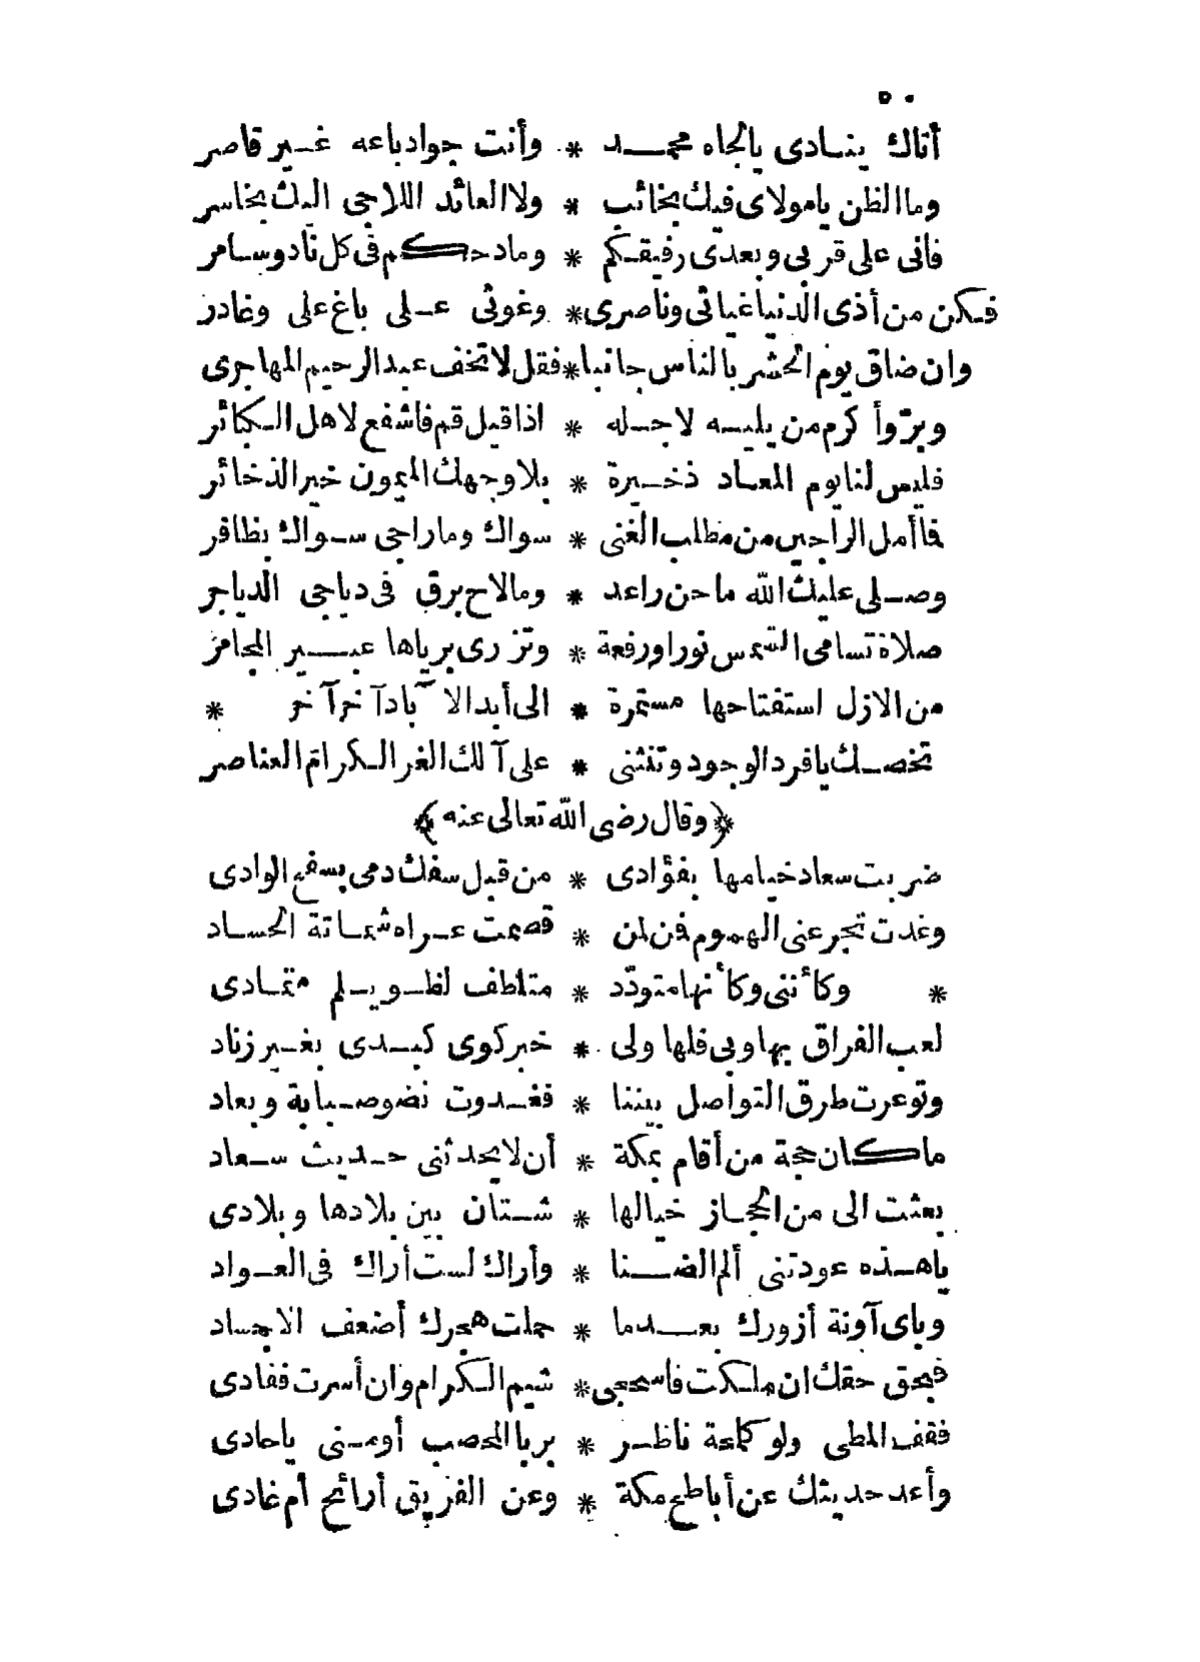 ٥٠
أتاك ينادى يالجاه محمد * وأنت جواد باعه غير قاصر
وما الظن يا مولاى فيك بخائب * ولا العائذ اللاجى اليك بخاسر
فانى على قربى وبعدى رفيقكم * ومادحكم فى كل ناد وسامر
فكن من أذى الدنيا غياثى وناصرى * وغوثى على باغ على وغادر
وان ضاق يوم الحشر بالناس جانبا * فقل لا تخف عبد الرحيم المهاجرى
وبرّ وأكرم من يليه لاجله * اذا قيل قم فاشفع لاهل الكبائر
فليس لنا يوم المعاد ذخيرة * بلا وجهك الميمون خير الذخائر
فما أمل الراجين من مطلب الغنى * سواك وما راجى سواك بظافر
وصلى عليك الله ما حن راعد * وما لاح برق فى دياجى الدياجر
صلاة تسامى الشمس نورا ورفعة * وتزرى برياها عبير المجامر
من الازل استفتاحها مستمرة * الى أبد الآباد آخر آخر *
تخصك يا فرد الوجود وتنثنى * على آلك الغر الكرام العناصر
﴿وقال رضى الله تعالى عنه﴾
ضربت سعاد خيامها بفؤادى * من قبل سفك دمى بسفح الوادى
وغدت تجرعنى الهموم فن لمن * قصمت عراه شماتة الحساد
* وكأننى وكأنها متودّد * متلطف لظويلم متمادى
لعب الفراق بها وبى فلها ولى * خبر كوى كبدى بغير زناد
وتوعرت طرق التواصل بيننا * فغدوت نضو صبابة وبعاد
ما كان حجة من أقام بمكة * أن لا يحدثنى حديث سعاد
بعثت الى من الحجاز خيالها * شتان بين بلادها وبلادى
يا هذه عودتنى ألم الضنا * وأراك لست أراك فى العواد
وباى آونة أزورك بعدما * حملت هجرك أضعف الاجساد
فبحق حقك ان ملكت فاسمحى * شيم الكرام وان أسرت ففادى
فقف المطى ولو كلمحة ناظر * بربا المحصب أو منى يا حادى
وأعد حديثك عن أباطح مكة * وعن الفريق أرائح أم غادى